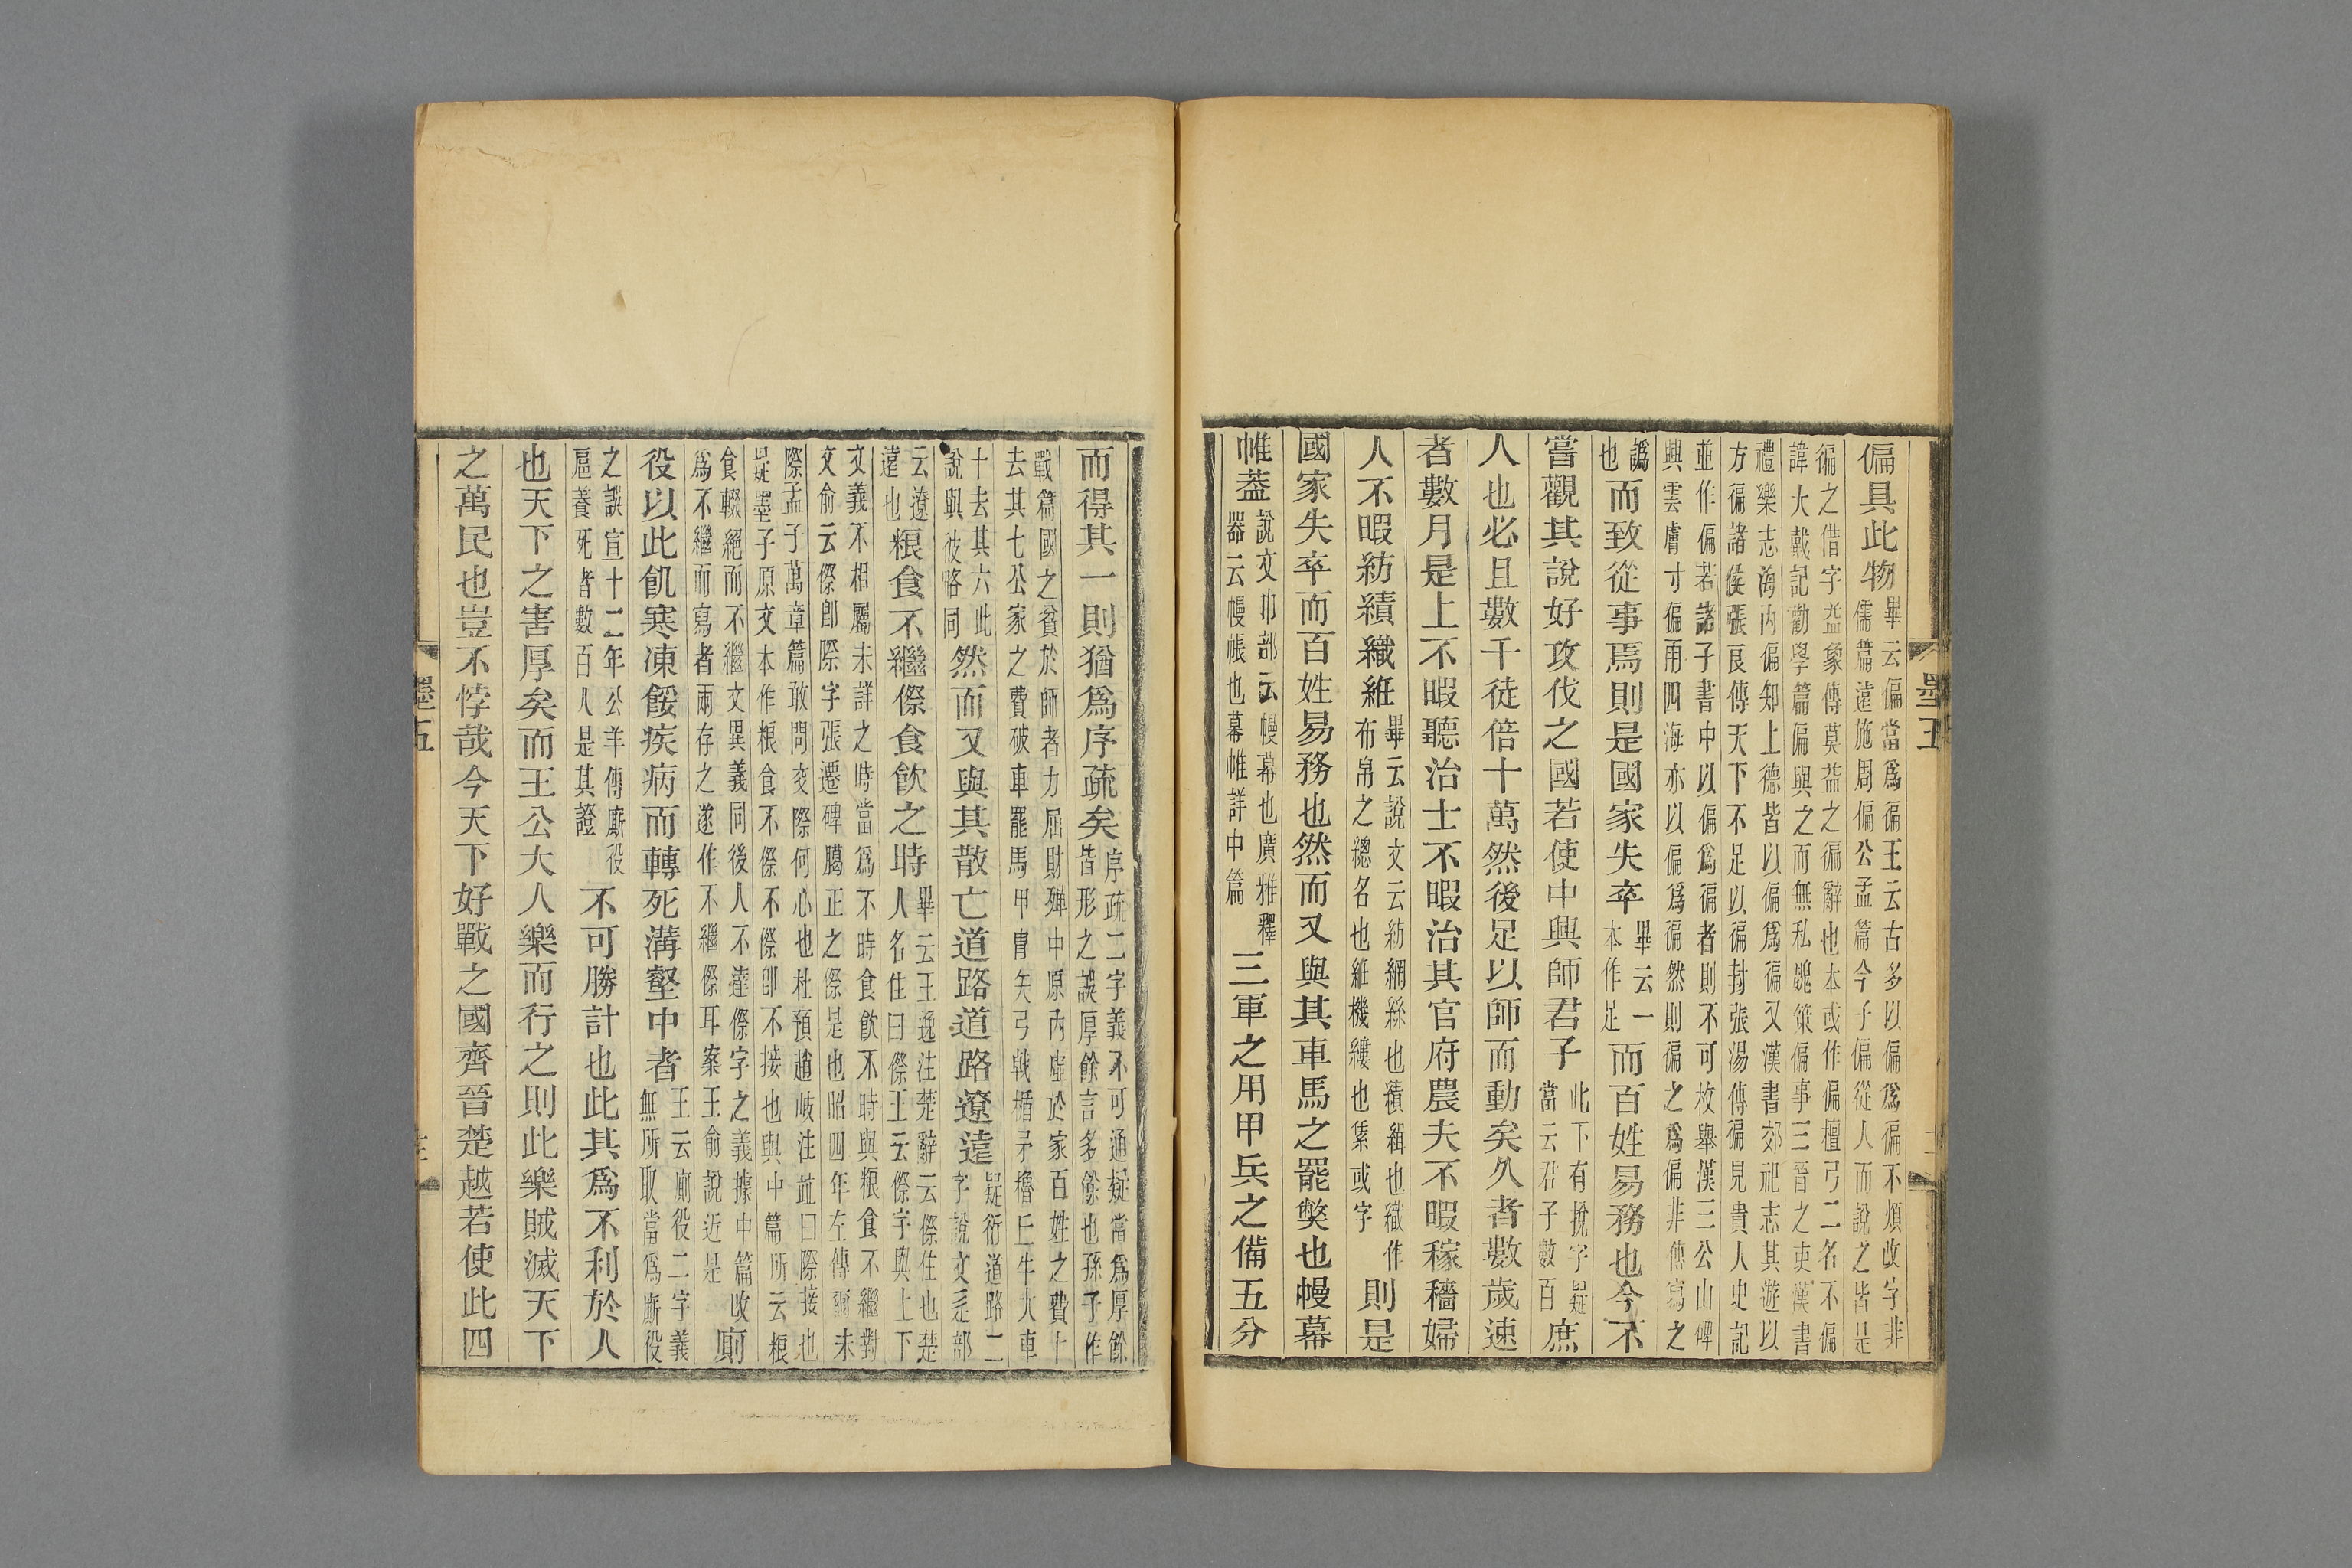 偏具此物畢云偏當爲徧王云古多以偏爲徧不煩改字非
儒篇遠施周偏公孟篇今子偏從人而說之皆是
徧之借字益象傳莫益之徧辭也本或作偏檀弓二名不偏
諱大戴記勸學篇偏與之而無私魏策偏事三晉之吏漢書
禮樂志海內偏知上德皆以偏爲徧又漢書郊祀志其遊以
方徧諸侯張良傳天下不足以徧封張湯傳徧見貴人史記
並作偏若諸子書中以偏爲徧者則不可枚舉漢三公山碑
興雲膚寸偏雨四海亦以偏爲徧然則徧之爲偏非傳寫之
譌也而致從事焉則是國家失卒畢云一本作足而百姓易務也今不
嘗觀其說好攻伐之國若使中興師君子此下有挩字疑當云君子數百庶
人也必且數千徒倍十萬然後足以師而動矣久者數歲速
者數月是上不暇聽治士不暇治其官府農夫不暇稼穡婦
人不暇紡績織紝畢云說文云紡網絲也績緝也織作布帛之總名也紝機縷也䋕或字則是
國家失卒而百姓易務也然而又與其車馬之罷獘也幔幕
帷葢說文巾部云幔幕也廣雅釋器云幔帳也幕帷詳中篇三軍之用甲兵之備五分
墨五
而得其一則猶爲序疏矣序疏二字義不可通疑當爲厚餘皆形之誤厚餘言多餘也孫子作
戰篇國之貧於師者力屈財殫中原內虛於家百姓之費十
去其七公家之費破車罷馬甲冑矢弓戟楯矛櫓丘牛大車
十去其六此說與彼略同然而又與其散亡道路道路遼遠疑衍道路二字說文辵部
云遼遠也粮食不繼傺食飲之時畢云王逸注楚辭云傺住也楚人名住曰傺王云傺字與上下
文義不相屬未詳之時當爲不時食飮不時與粮食不繼對
文俞云傺卽際字張遷碑臈正之傺是也昭四年左傳爾未
際孟子萬章篇敢問交際何心也杜預趙岐注並曰際接也
疑墨子原文本作粮食不傺不傺卽不接也與中篇所云粮
食輟絕而不繼文異義同後人不達傺字之義據中篇改
爲不繼而寫者兩存之遂作不繼傺耳案王俞說近是廁
役以此飢寒凍餒疾病而轉死溝壑中者王云廁役二字義無所取當爲廝役
之誤宣十二年公羊傳廝役扈養死者數百人是其證不可勝計也此其爲不利於人
也天下之害厚矣而王公大人樂而行之則此樂賊滅天下
之萬民也豈不悖哉今天下好戰之國齊晉楚越若使此四
墨五